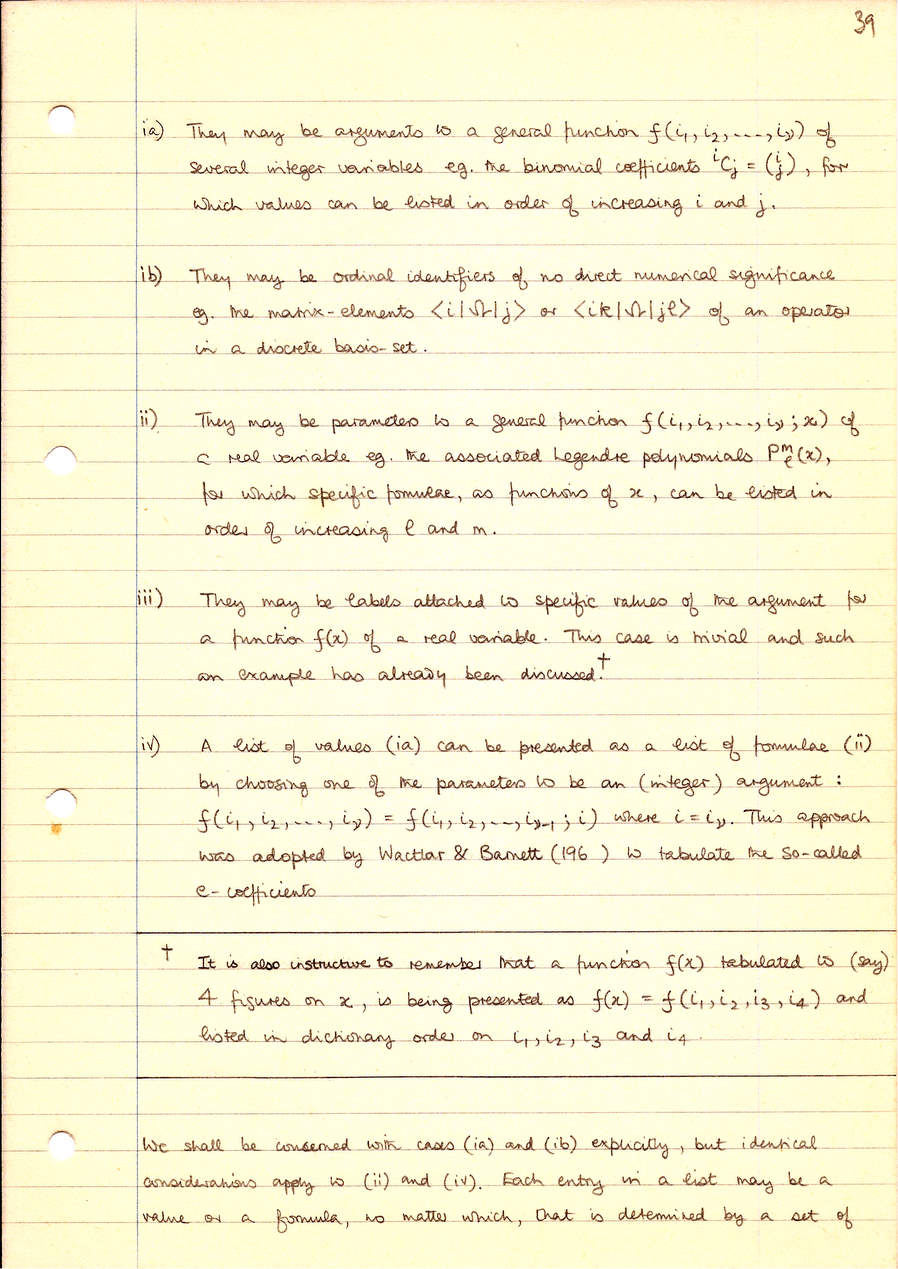 39
ia) They may be arguments to a general function f(i₁, i₂, ...., iᵥ) of
several integer variables eg. the binomial coefficients ⁱCⱼ = (ⁱⱼ), for
which values can be listed in order of increasing i and j.
ib) They may be ordinal identifiers of no direct numerical significance
eg. the matrix-elements <i|Ω|j> or <ik|Ω|jl> of an operator
in a discrete basis-set.
ii) They may be parameters to a general function f(i₁, i₂, ...., iᵥ ; x) of
a real variable eg. the associated Legendre polynomials Pᵐₗ(x),
for which specific formulae, as functions of x, can be listed in
order of increasing l and m.
iii) They may be labels attached to specific values of the argument for
a function f(x) of a real variable. This case is trivial and such
an example has already been discussed.†
iv) A list of values (ia) can be presented as a list of formulae (ii)
by choosing one of the parameters to be an (integer) argument :
f(i₁, i₂, ...., iᵥ) = f(i₁, i₂, ..., iᵥ₋₁ ; i) where i = iᵥ. This approach
was adopted by Wactlar & Barnett (196 ) to tabulate the so-called
e-coefficients
† It is also instructive to remember that a function f(x) tabulated to (say)
4 figures on x, is being presented as f(x) = f(i₁, i₂, i₃, i₄) and
listed in dictionary order on i₁, i₂, i₃ and i₄.
We shall be concerned with cases (ia) and (ib) explicitly, but identical
considerations apply to (ii) and (iv). Each entry in a list may be a
value or a formula, no matter which, that is determined by a set of